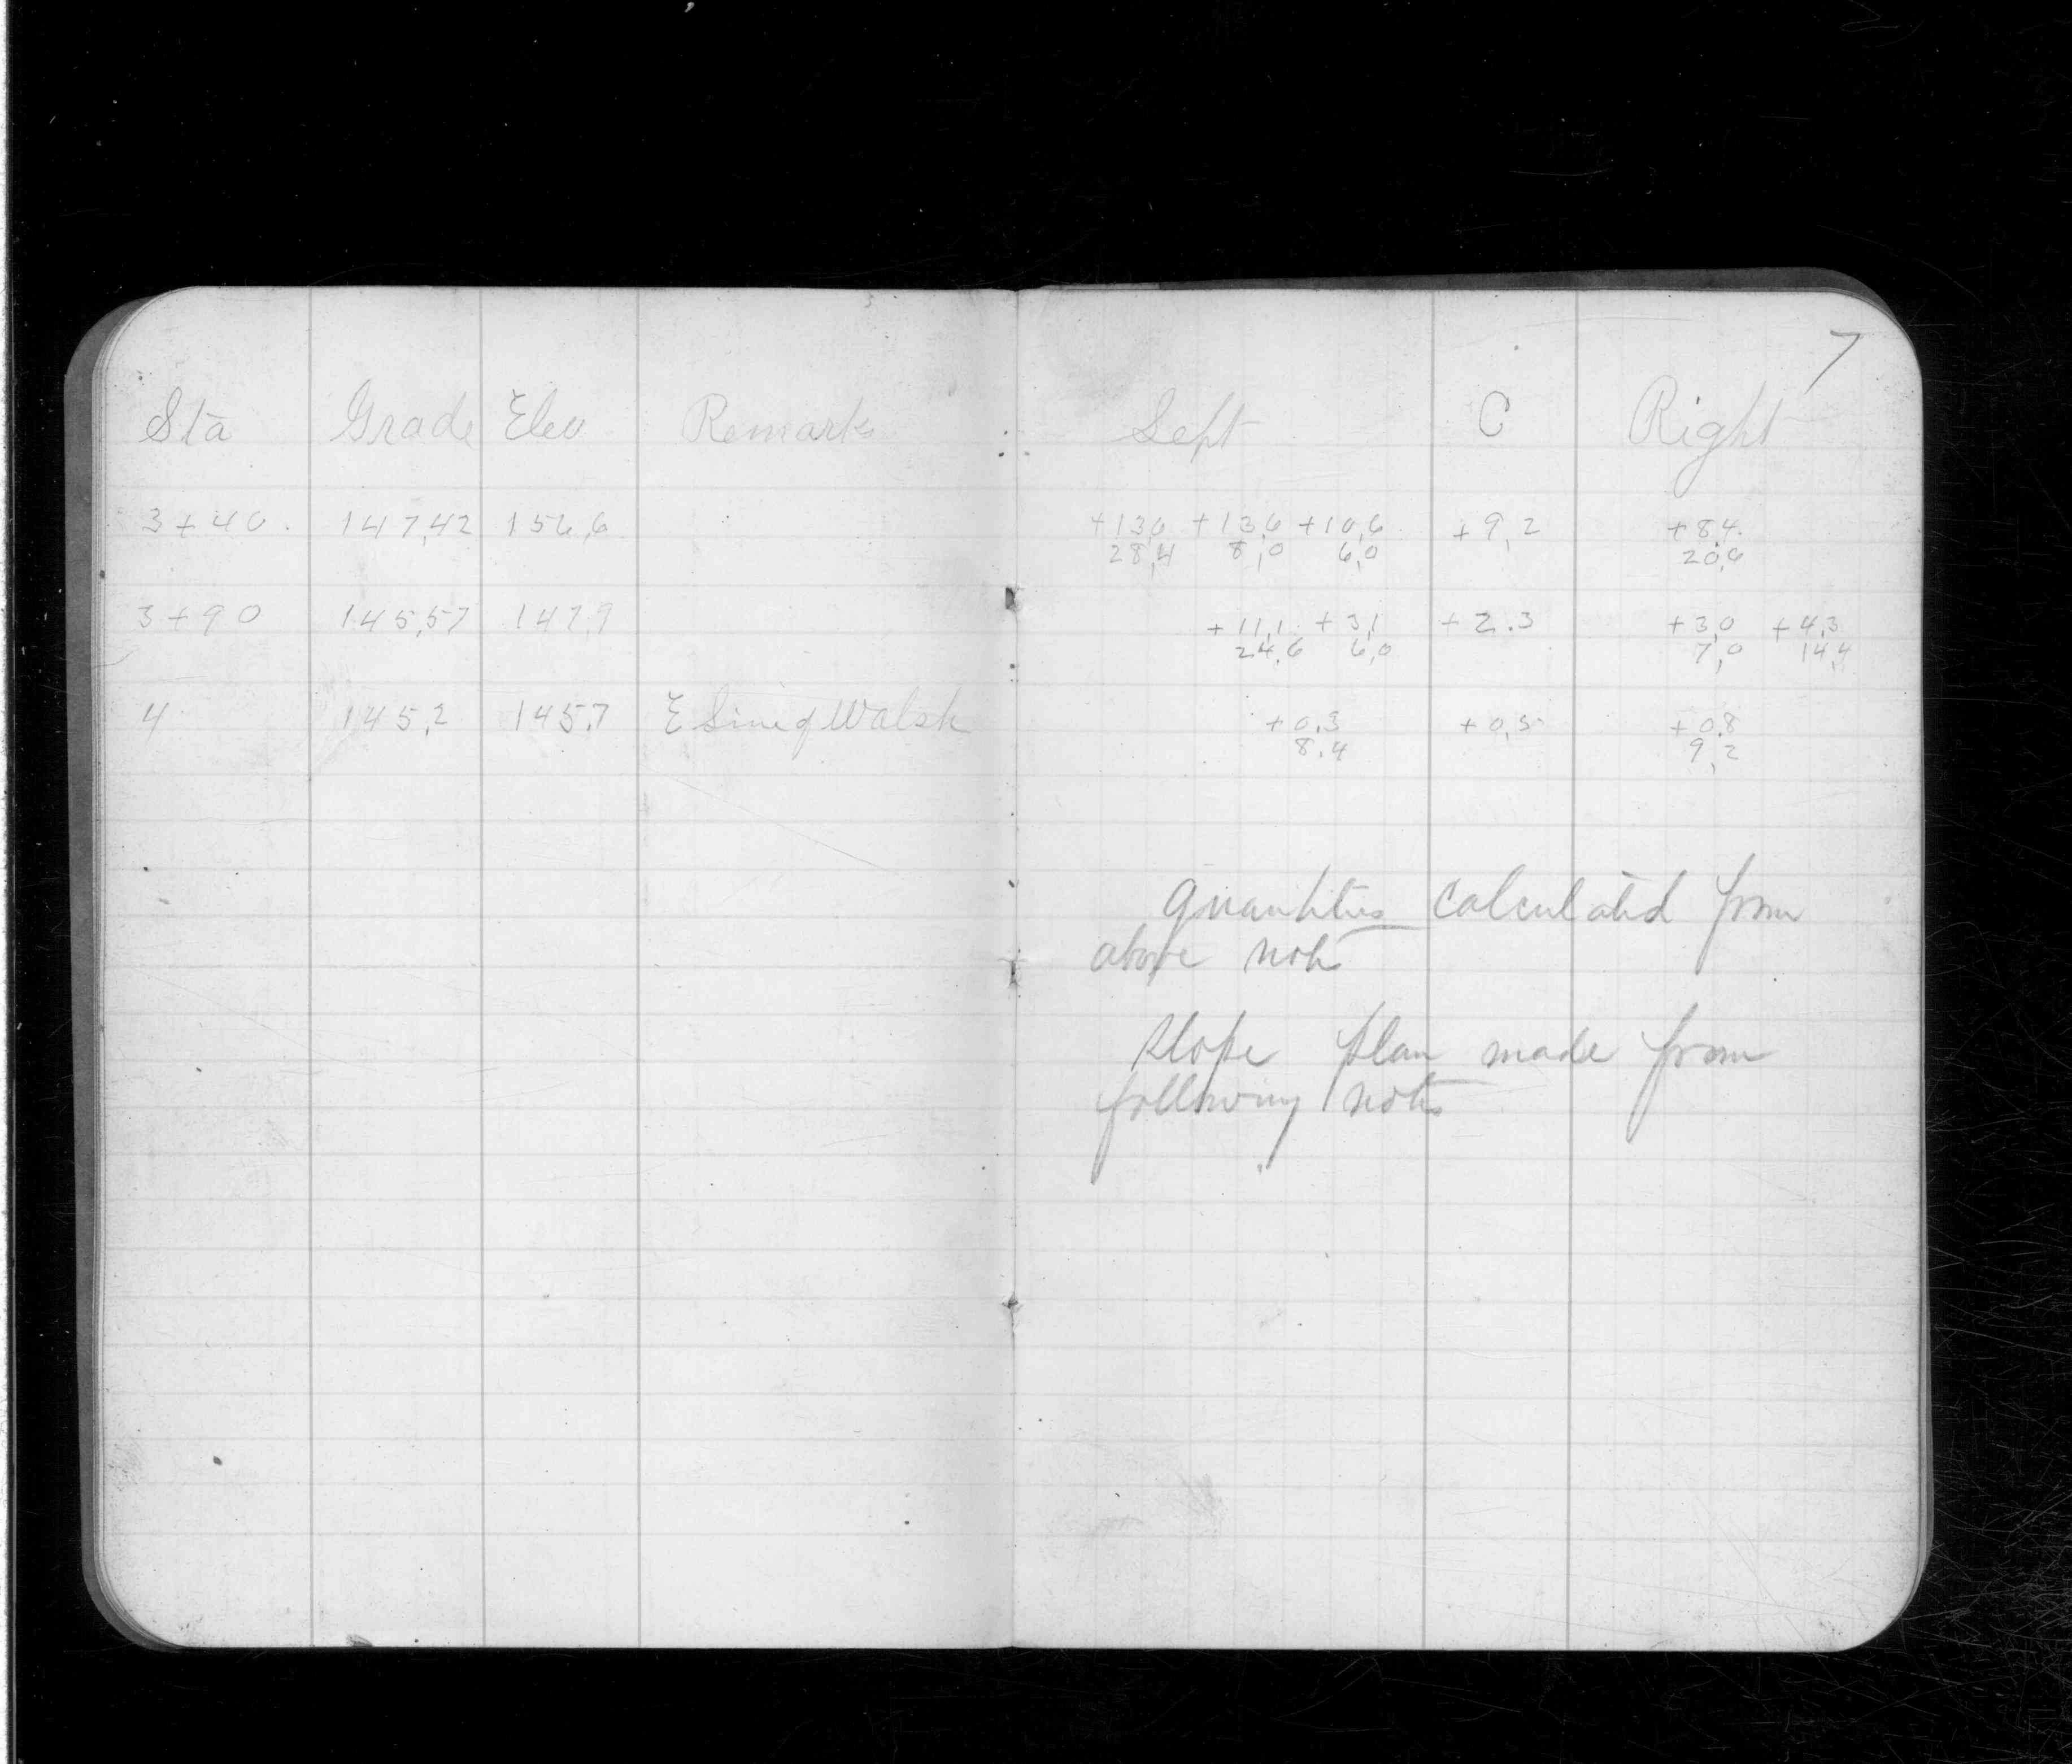 7
Sta Grade Elev Remarks Left C Right
3+40. 147.42 156.6 +13.6 +13.6 +10.6 +9.2 +8.4
28.4 8.0 6.0 20.6
3+90 145.57 147.9 +11.1 +3.1 +2.3 +3.0 +4.3
24.6 6.0 7.0 14.4
4 145.2 145.7 E Line of Walsh +0.3 +0.5 +0.8
8.4 9.2
Quantities calculated from
above note
Slope plan made from
following notes